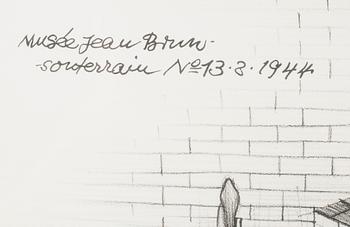 musée Jean Brun-
-souterrain No 13.8.1944